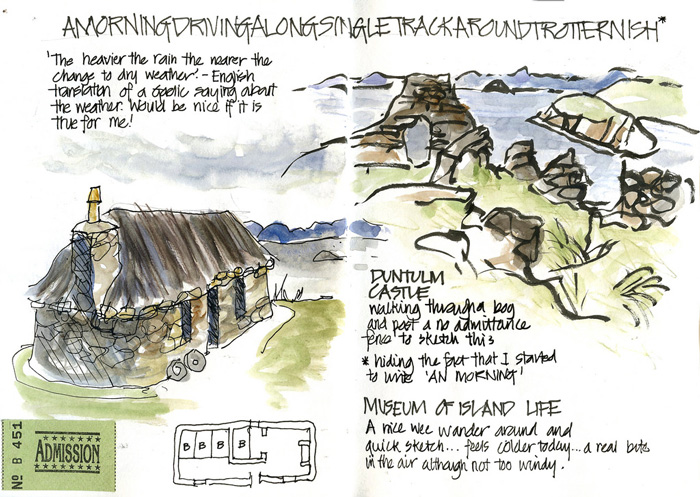 AMORNINGDRIVINGALONGSINGLETRACKAROUNDTROTTERNISH*
'The heavier the rain the nearer the
change to dry weather'. - English
translation of a Gaelic saying about
the weather. Would be nice if it is
true for me!
DUNTULM
CASTLE
walking through a bog
and past a no admittance
fence to sketch this
* hiding the fact that I started
to write 'AN MORNING'
MUSEUM OF ISLAND LIFE
A nice wee wander around and
quick sketch... feels colder today... a real bite
in the air although not too windy.
No B 451
ADMISSION
B B B B